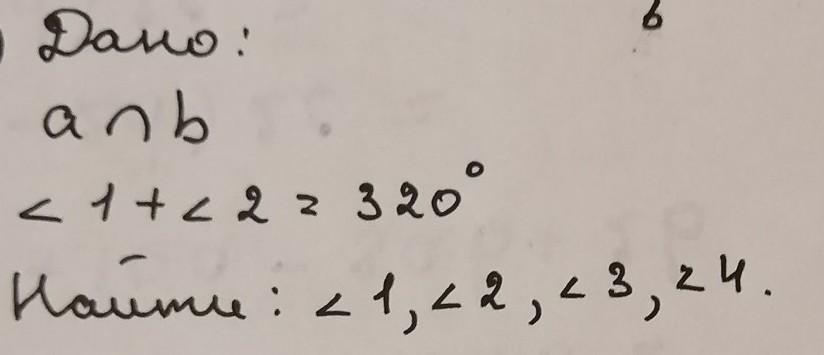 b
Дано:
a ∩ b
< 1 + < 2 = 320°
Найти: < 1, < 2, < 3, < 4.